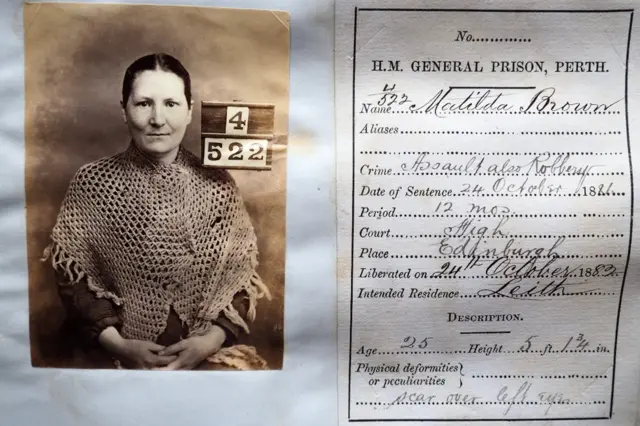 4
522
No............
H.M. GENERAL PRISON, PERTH.
4
522
Name Matilda Brown
Aliases
Crime Assault also Robbery
Date of Sentence 24 October 1881
Period 12 mos
Court High
Place Edinburgh
Liberated on 24th October 1882
Intended Residence Leith
DESCRIPTION.
Age 25 Height 5 ft. 1 3/4 in.
Physical deformities
or peculiarities
scar over left eye